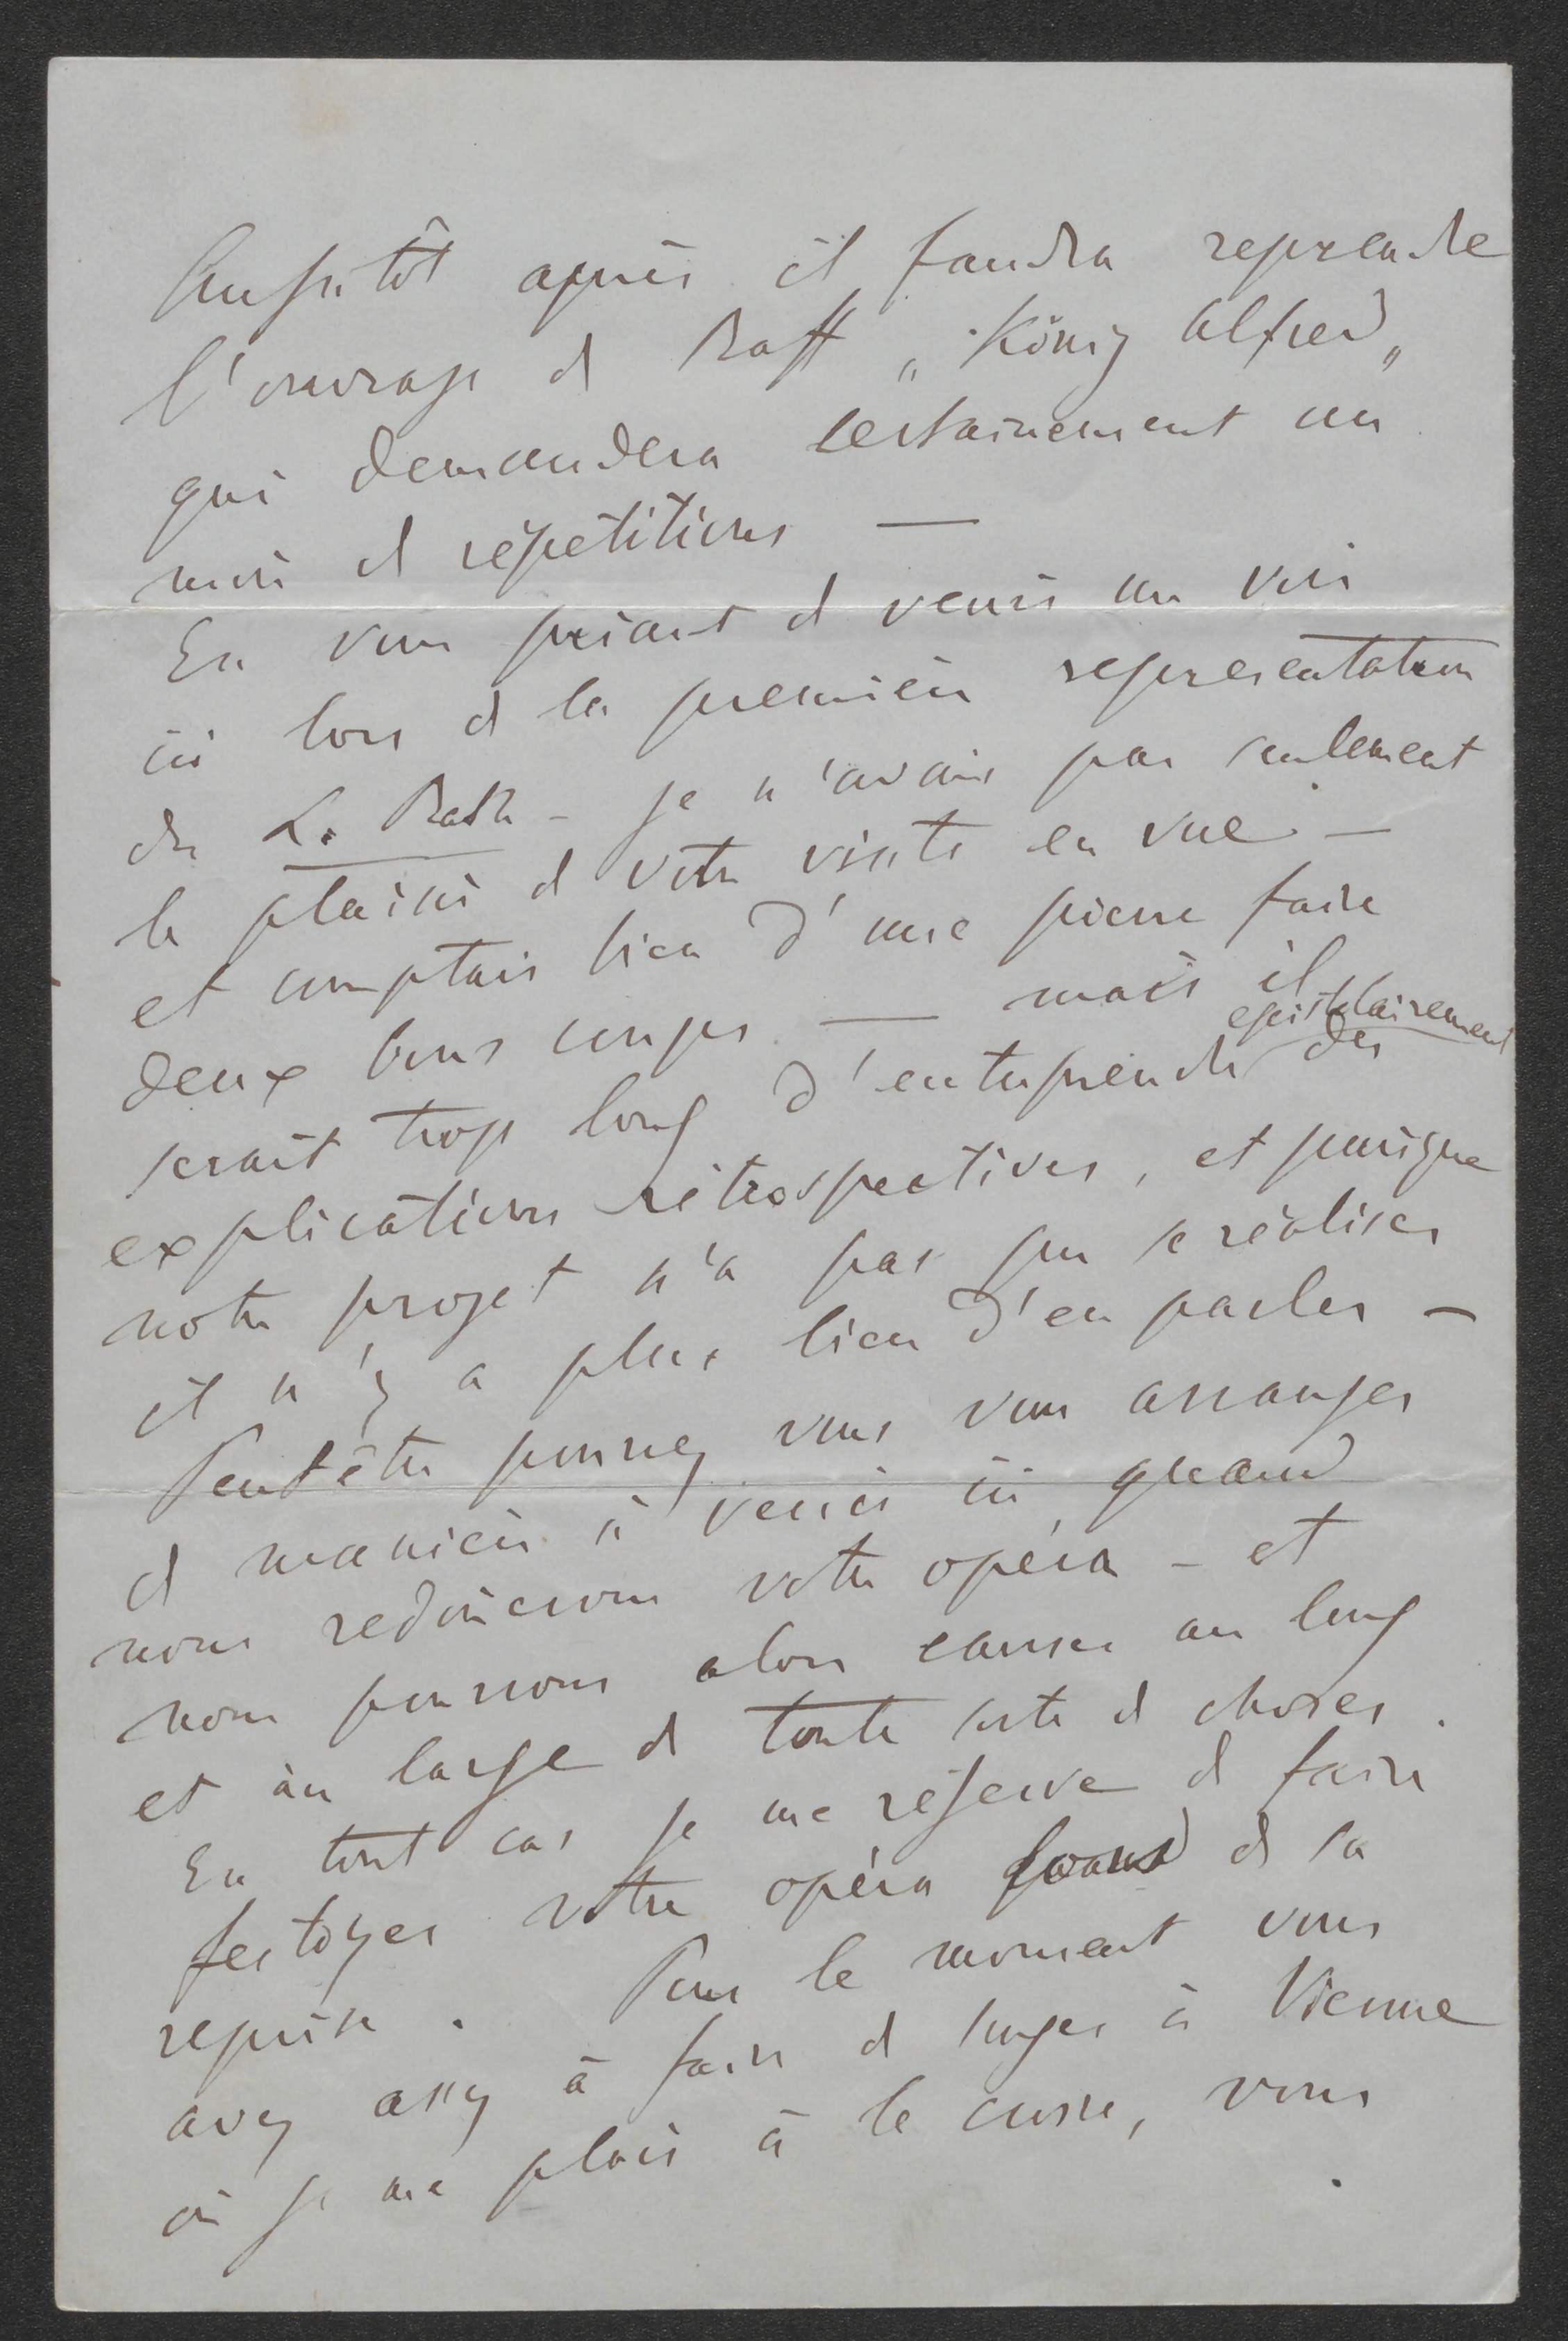 Aussitôt après il faudra reprendre
l'ouvrage de Raff „König Alfred„
qui demandera certainement un
mois de répétitions —
En vous priant de venir me voir
ici lors de la première représentation
du L. Rath – je n'avais pas seulement
le plaisir de votre visite en vue –
et comptais bien d'une pierre faire
deux bons coups — mais il
serait trop long d'entreprendre epistolairement des
explications rétrospectives, et puisque
notre projet n'a pas pu se réaliser
il n'y a plus lieu d'en parler –
Peut être pourrez vous vous arranger
de manière à venir ici quand
nous redonnerons votre opéra – et
nous pourrons alors causer au long
et au large de toute sorte de choses.
En tout cas je me réserve de faire
festoyer votre opéra quand de sa
reprise. Pour le moment vous
avez assez à faire de songer à Vienne
où je me plais à le croire, vous